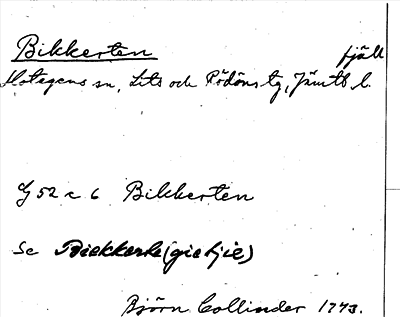 Bikkerten fjäll
Hotagens sn, Lits och Rödöns tg, Jämtl l.
G 52 c 6 Bikkerten
Se Biekkerke (giehjie)
Björn Collinder 1943.